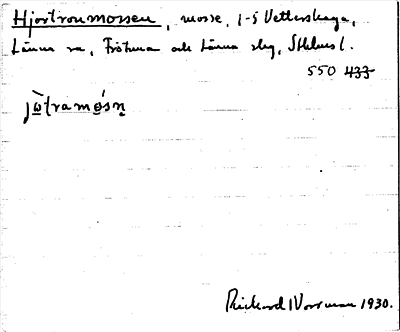 Hjortronmossen, mosse, 1-5 Vetterskaga,
Länna sn, Frötuna och Länna slg, Sthlms l.
550 433
jὼtramǫ́sn̥
Rickard Norrman 1930.